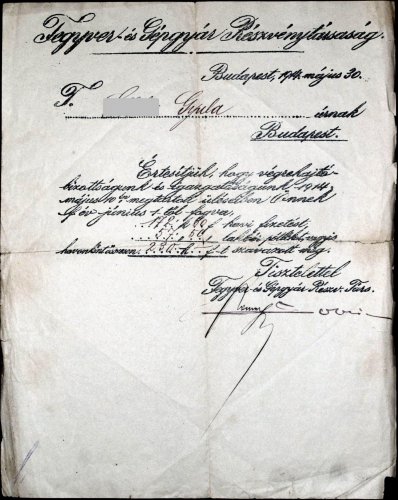 Fegyver- és Gépgyár Részvénytársaság.
Budapest, 1914. május 30.
T. Gyula
úrnak
Budapest.
Értesítjük, hogy végrehajtó-
bizottságunk és Igazgatóságunk 1914
május megtartott ülésében Önnek
f. év június 1-től fogva,
havi fizetést,
lakbér pótlékot, vagyis
havonként összesen 230 K. f-t szavazott meg.
Tisztelettel
Fegyver és Gépgyár Részv. Társ.